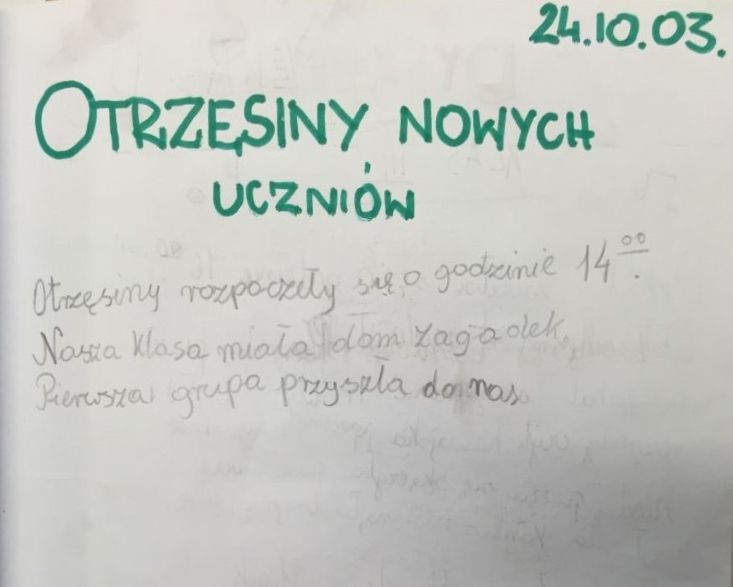 24.10.03.
OTRZĘSINY NOWYCH
UCZNIÓW
Otrzęsiny rozpoczeły się o godzinie 14⁰⁰.
Nasza klasa miała dom zagadek.
Pierwsza grupa przyszła do nas